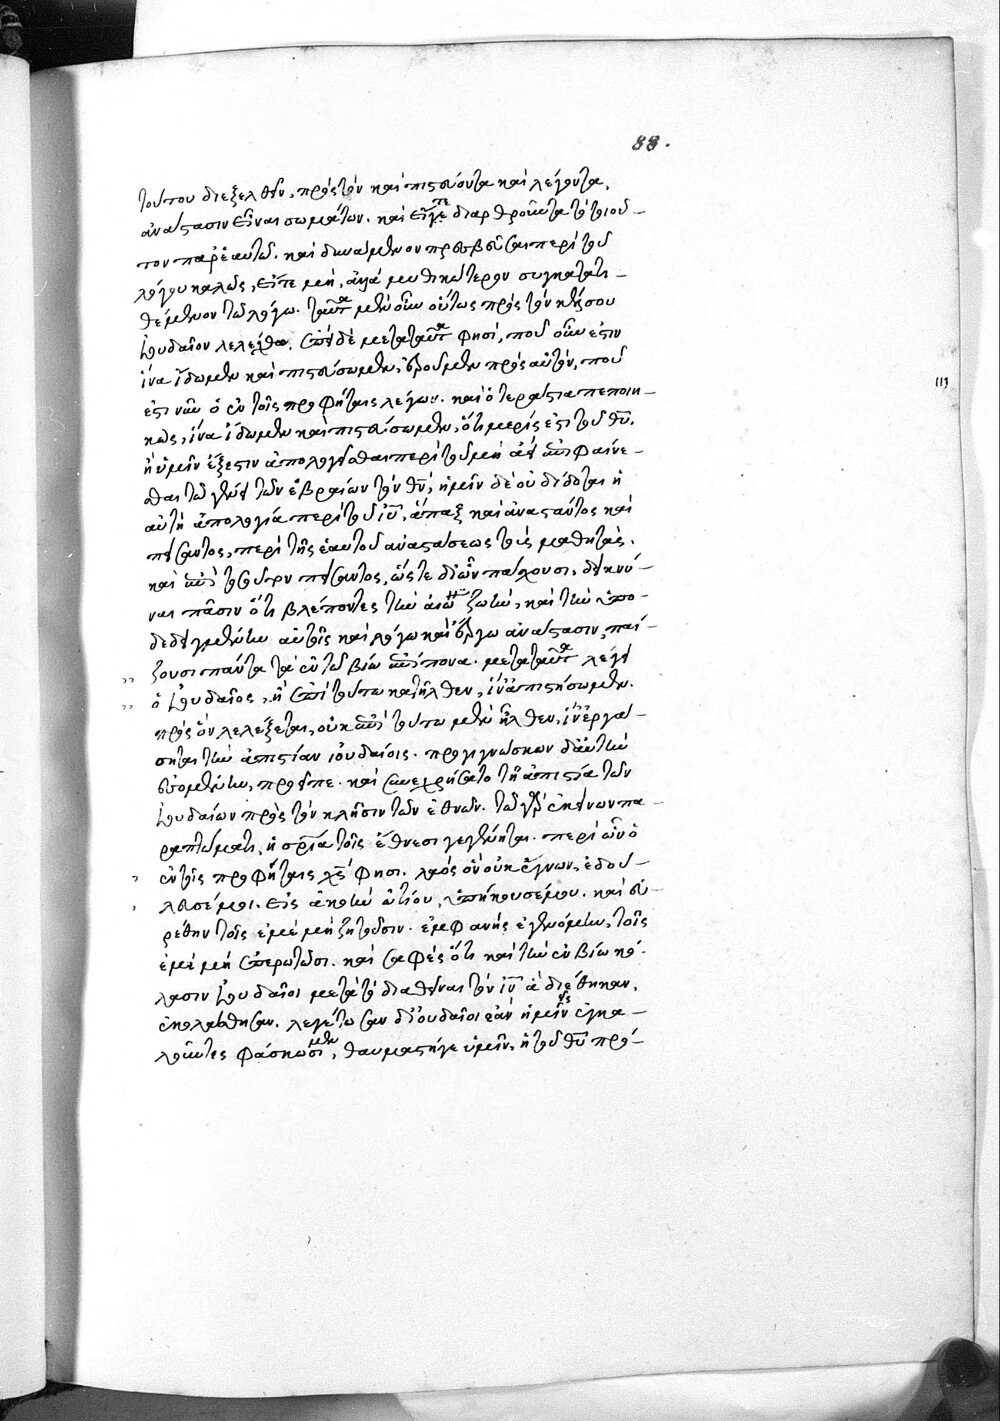 τόπου διεξελθεῖν, πρὸς τὸν καὶ πιστεύοντα καὶ λέγοντα,
ἀνάστασιν εἶναι σωμάτων. καὶ εἴγε διαρθροῦντα τὸ τοιοῦ-
τον παρ' ἑαυτῶ. καὶ δυνάμενον πρεσβεῦσαι περὶ τοῦ
λόγου καλῶς, εἴτε μὴ, ἀλλὰ μυθικώτερον συγκατατι-
θέμενον τῶ λόγω. ταῦτα μὲν οὖν οὕτως πρὸς τὸν κέλσου
ἰουδαῖον λελέχθω. ἐπεὶ δὲ μετὰ ταῦτα φησὶ, ποῦ οὖν ἐστιν
ἵνα ἴδωμεν καὶ πιστεύσωμεν, ἐροῦμεν πρὸς αὐτὸν, ποῦ
ἐστι νῦν ὁ ἐν τοῖς προφήταις λέγων. καὶ ὁ τεράστια πεποιη-
κὼς, ἵνα ἴδωμεν καὶ πιστεύσωμεν, ὅτι μερίς ἐστι τοῦ θῦ.
ἢ ὑμῖν ἔξεστιν ἀπολογεῖσθαι περὶ τοῦ μὴ ἀεὶ ἐπιφαίνε-
σθαι τῶ γένει τῶν ἑβραίων τὸν θν, ἡμῖν δὲ οὐ δίδοται ἡ
αὐτὴ ἀπολογία περὶ τοῦ ιυ, ἅπαξ καὶ ἀναστάντος καὶ
πείσαντος, περὶ τῆς ἑαυτοῦ ἀναστάσεως τοὺς μαθητὰς.
καὶ ἐπὶ τοσοῦτον πείσαντος, ὥστε δι' ὧν πάσχουσι, δεικνύ-
ναι πᾶσιν ὅτι βλέποντες τὴν αἰώνιον ζωὴν, καὶ τὴν ὑπο-
δεδειγμένην αὐτοῖς καὶ λόγω καὶ ἔργω ἀνάστασιν, παί-
ζουσι πάντα τὰ ἐν τῶ βίω ἐπίπονα. μετὰ ταῦτα λέγει
ὁ ἰουδαῖος, ἢ ἐπὶ τούτω κατῆλθεν, ἵν' ἀπιστήσωμεν.
πρὸς ὃν λελέξεται, οὐκ ἐπὶ τούτω μὲν ἦλθεν, ἵν' ἐργά-
σηται τὴν ἀπιστίαν ἰουδαίοις. προγιγνώσκων δ' αὐτὴν
ἐσομένην, προεῖπε. καὶ συνεχρήσατο τῆ ἀπιστία τῶν
ἰουδαίων πρὸς τὴν κλῆσιν τῶν ἐθνῶν. τῶ γὰρ ἐκείνων πα-
ραπτώματι, ἡ σρία τοῖς ἔθνεσι γεγένηται. περὶ ὧν ὁ
ἐν τοῖς προφήταις χς φησι. λαὸς ὃν οὐκ ἔγνων, ἐδού-
λευσέ μοι. εἰς ἀκοὴν ὠτίου, ὑπήκουσέ μου. καὶ εὑ-
ρέθην τοῖς ἐμὲ μὴ ζητοῦσιν. ἐμφανὴς ἐγενόμην, τοῖς
ἐμὲ μὴ ἐπερωτῶσι. καὶ σαφὲς ὅτι καὶ τὴν ἐν βίω κό-
λασιν ἰουδαῖοι μετὰ τὸ διαθεῖναι τὸν ιν ἃ διέθηκαν,
ἐκολάσθησαν. λεγέτωσαν δ' ἰουδαῖοι ἐὰν ἡμεῖς ἐγκα-
λοῦντες φάσκωμεν, θαυμαστήγε ὑμῖν, ἡ τοῦ θῦ πρό-